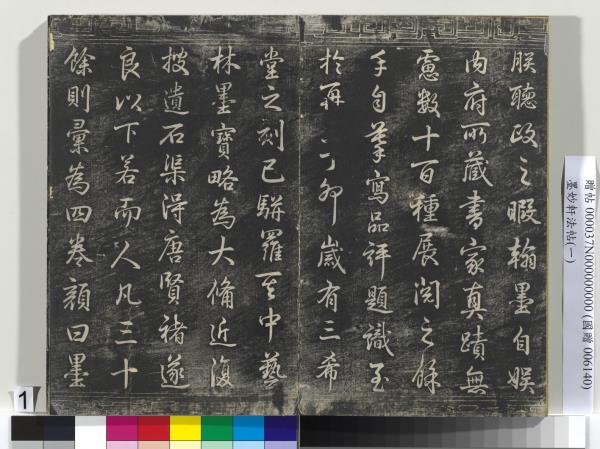 朕聽政之暇翰墨自娛
內府所藏書家真蹟無
慮數十百種展閱之餘
手自摹寫品評題識至
於再 丁卯歲有三希
堂之刻已駢羅其中藝
林墨寶略為大備近復
搜遺石渠得唐賢褚遂
良以下若而人凡三十
餘則彙為四卷顏曰墨
贈帖 000037N000000000 (國贈 006140)
墨妙軒法帖(一)
1